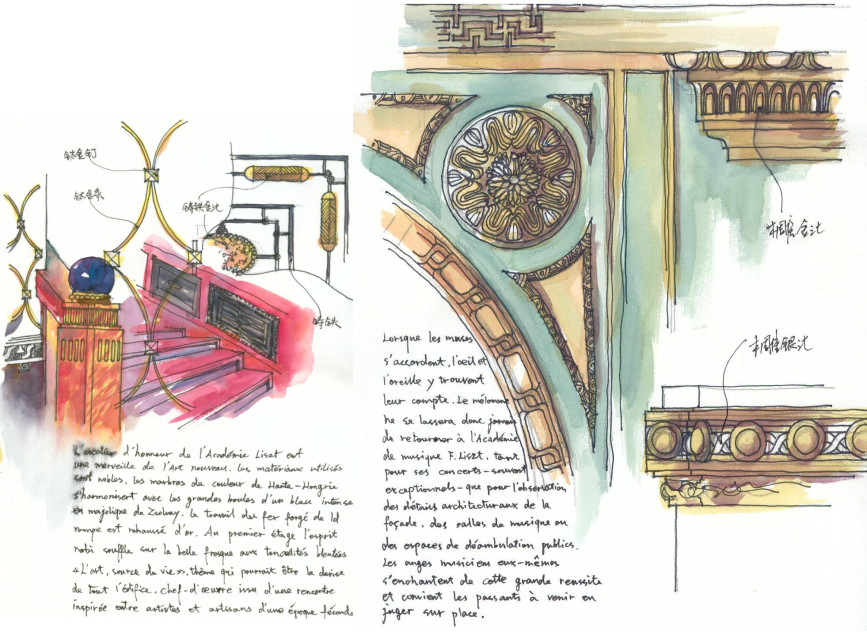 钛金钉
钛金条
铸铁金沈
铸铁
L'escalier d'honneur de l'Académie Liszt est
une merveille de l'Art nouveau. Les matériaux utilisés
sont nobles. Les marbres de couleur de Haute-Hongrie
s'harmonisent avec les grandes boules d'un bleu intense
en majolique de Zsolnay. Le travail du fer forgé de la
rampe est rehaussé d'or. Au premier étage l'esprit
nabi souffle sur la belle fresque aux tonalités bleutées
« L'art, source de vie », thème qui pourrait être la devise
de tout l'édifice, chef-d'œuvre issu d'une rencontre
inspirée entre artistes et artisans d'une époque féconde
木雕金沈
木雕银沈
Lorsque les muses
s'accordent, l'œil et
l'oreille y trouvent
leur compte. Le mélomane
ne se lassera donc jamais
de retourner à l'Académie
de musique F. Liszt, tant
pour ses concerts - souvent
exceptionnels - que pour l'observation
des détails architecturaux de la
façade, des salles de musique ou
des espaces de déambulation publics.
Les anges musiciens eux-mêmes
s'enchantent de cette grande réussite
et convient les passants à venir en
juger sur place.